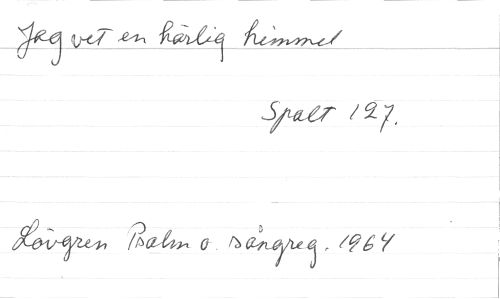 Jag vet en härlig himmel
Spalt 127.
Lövgren Psalm o. sångreg. 1964